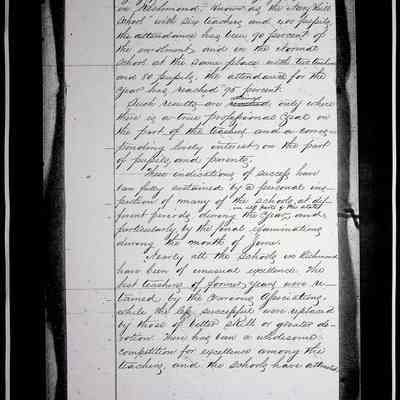 in Richmond. Known as the Navy Hill
School" with six teachers and 400 pupils,
the attendance has been 90 percent of
the enrolment and in the Normal
School at the same place with two teachers
and 50 pupils. the attendance for the
Year has reached 95 percent.
Such results are realized only where
there is a true professional Zeal on
the part of the teachers and a corres-
ponding lively interest on the part
of pupils and parents.
These indications of success have
been fully sustained by a personal ins-
pection of many of the schools, at dif-
in all parts of the state
ferent periods during the Year, and
particularly by the final examinations
during the month of June.
Nearly all the schools in Richmond
have been of unusual excellence. The
best teachers of former years were re-
tained by the various Associations,
while the less successful were replaced
by those of better skill or greater de-
votion. There has been a wholesome
competition for excellence among the
teachers, and the schools have attracted